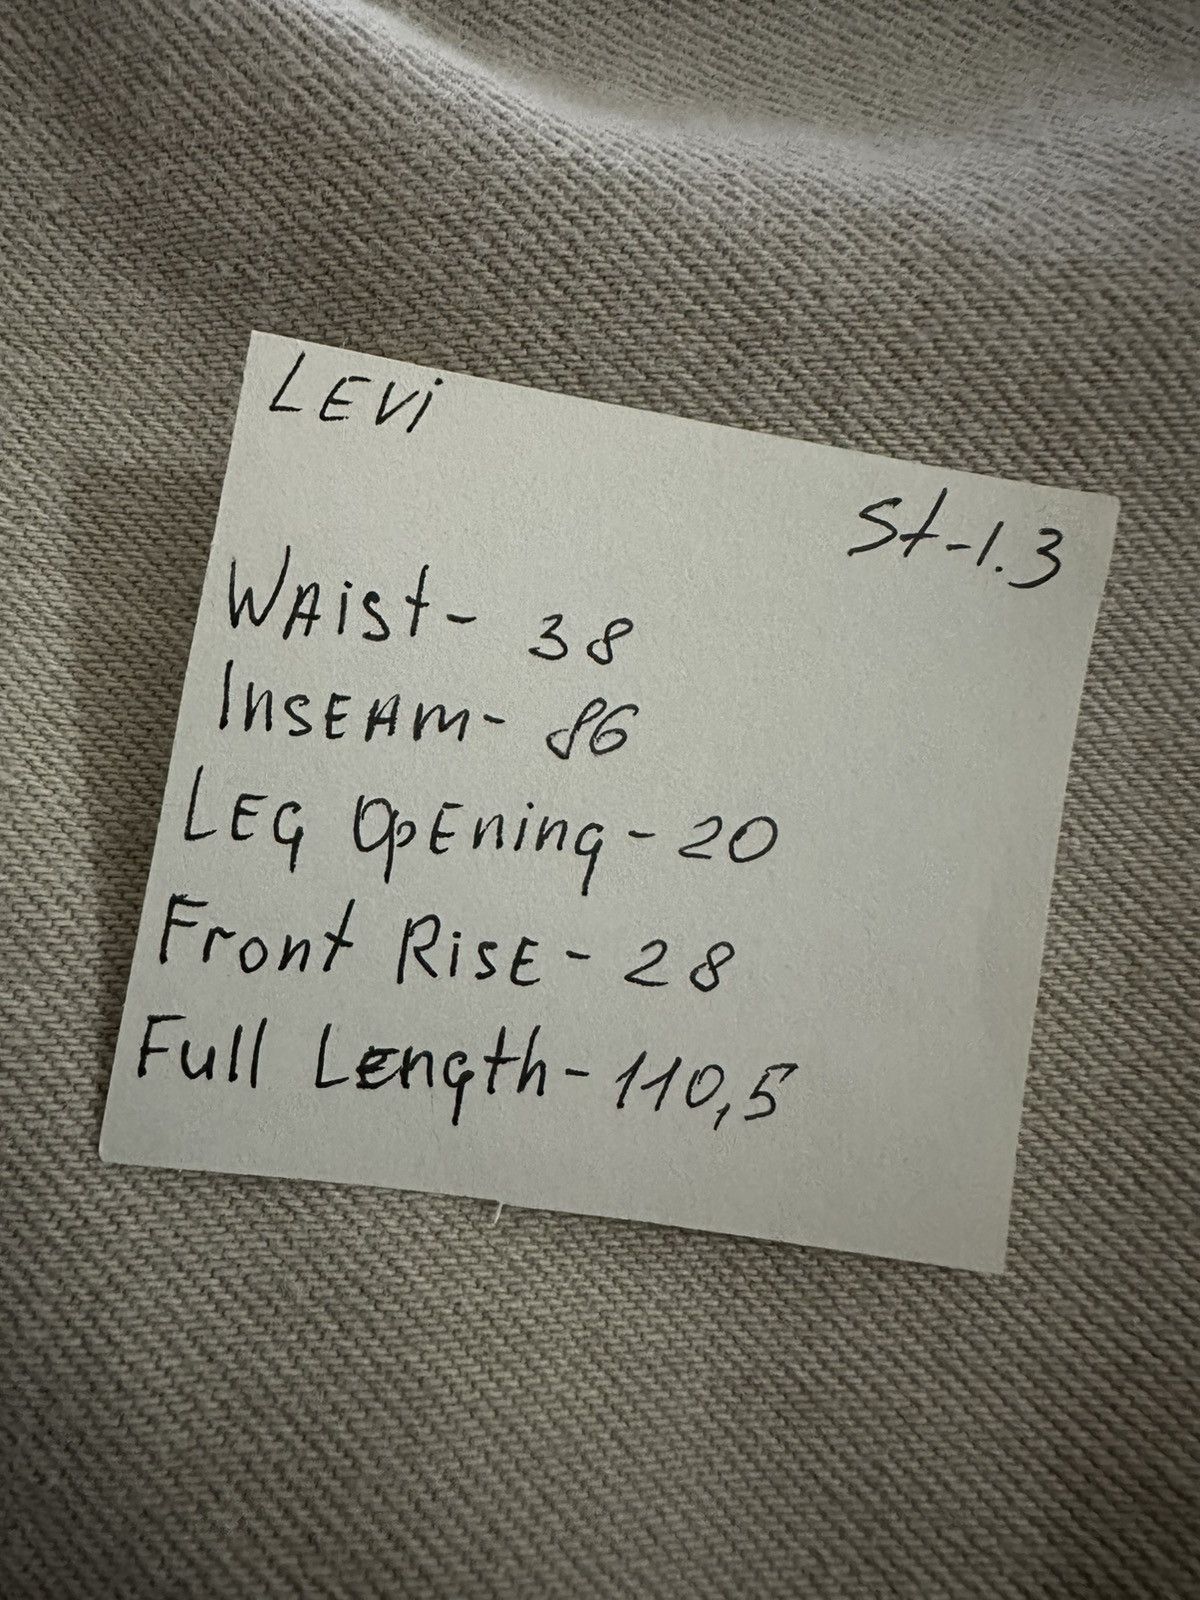 LEVi
St-1.3
WAist- 38
InsEAm- 86
LEg OpEning- 20
Front RisE- 28
Full Length- 110,5